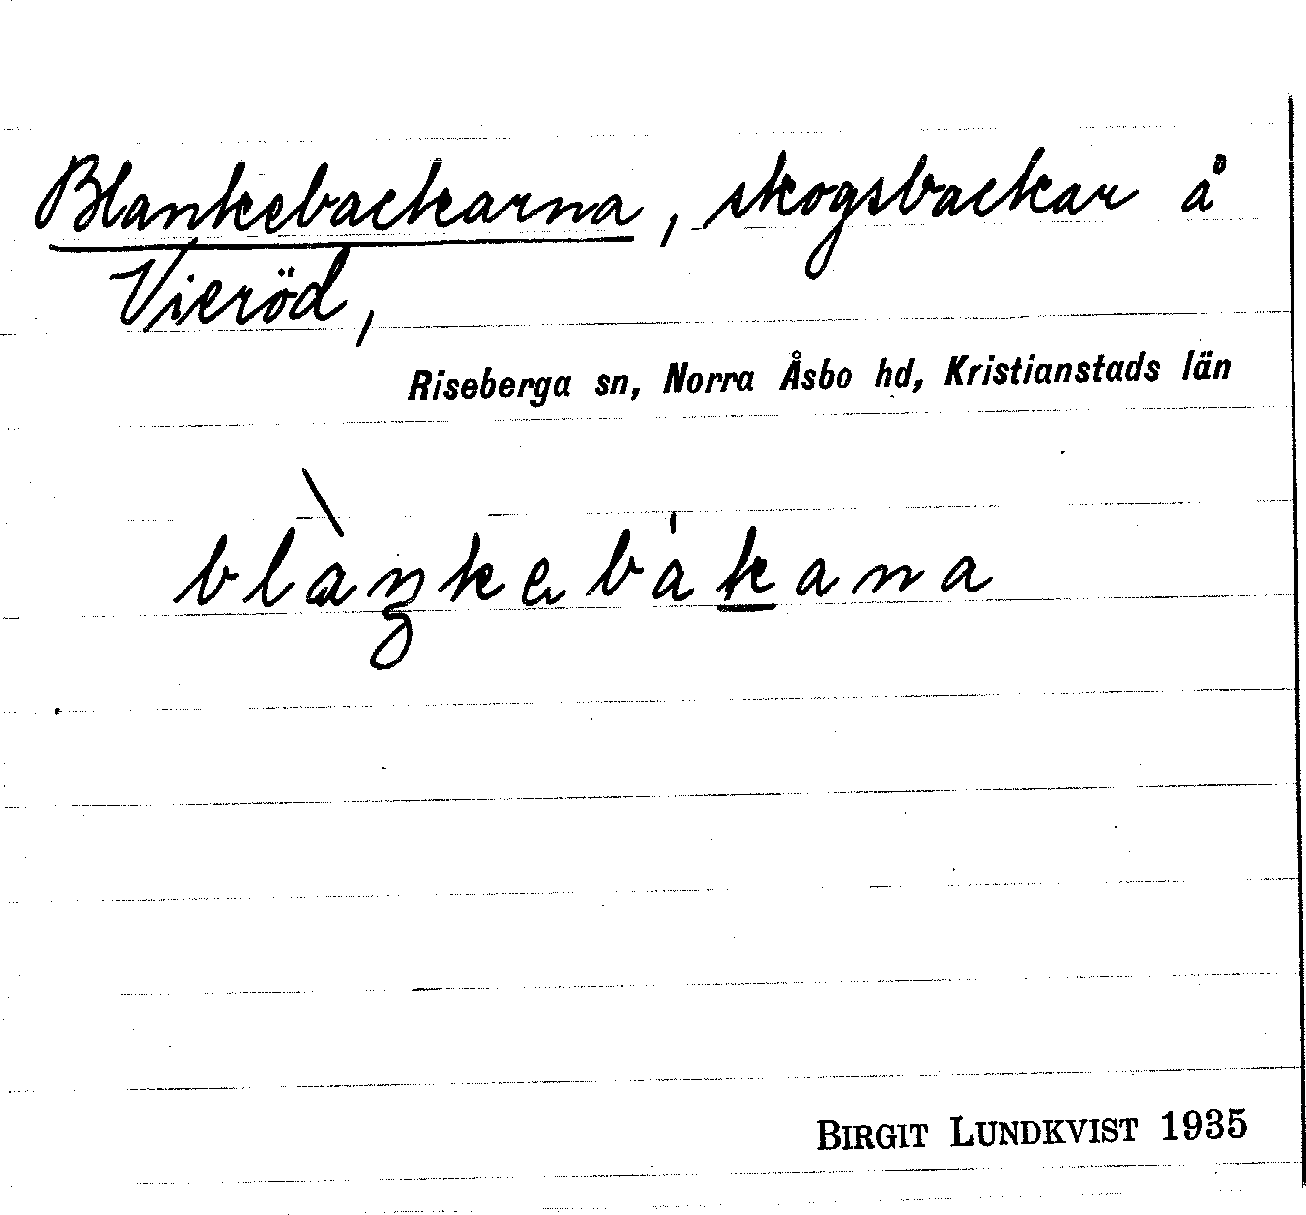 Blankebackarna, skogsbackar å
Vieröd,
Riseberga sn, Norra Åsbo hd, Kristianstads län
blàŋkebákana
BIRGIT LUNDKVIST 1935